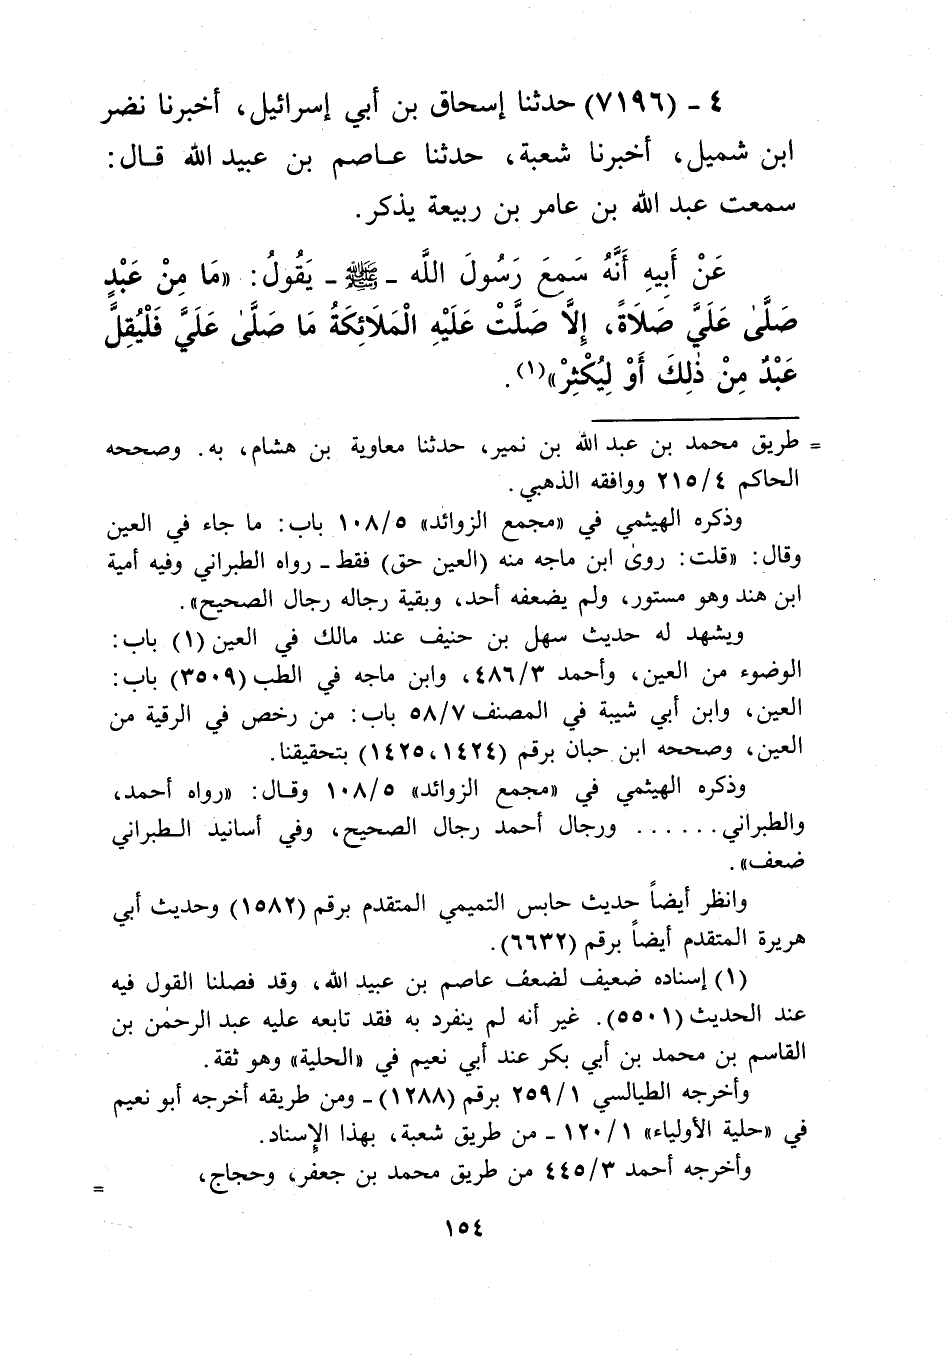 ٤ - (٧١٩٦) حدثنا إسحاق بن أبي إسرائيل، أخبرنا نضر
ابن شميل، أخبرنا شعبة، حدثنا عاصم بن عبيد الله قال:
سمعت عبد الله بن عامر بن ربيعة يذكر.
عَنْ أَبِيهِ أَنَّهُ سَمِعَ رَسُولَ اللَّه - ﷺ - يَقُولُ: «مَا مِنْ عَبْدٍ
صَلَّىٰ عَلَيَّ صَلَاةً، إِلَّا صَلَّتْ عَلَيْهِ الْمَلَائِكَةُ مَا صَلَّىٰ عَلَيَّ فَلْيُقِلَّ
عَبْدٌ مِنْ ذٰلِكَ أَوْ لِيُكْثِرْ»(١).
= طريق محمد بن عبد الله بن نمير، حدثنا معاوية بن هشام، به. وصححه
الحاكم ٢١٥/٤ ووافقه الذهبي.
وذكره الهيثمي في «مجمع الزوائد» ١٠٨/٥ باب: ما جاء في العين
وقال: «قلت: روىٰ ابن ماجه منه (العين حق) فقط - رواه الطبراني وفيه أمية
ابن هند وهو مستور، ولم يضعفه أحد، وبقية رجاله رجال الصحيح».
ويشهد له حديث سهل بن حنيف عند مالك في العين (١) باب:
الوضوء من العين، وأحمد ٤٨٦/٣، وابن ماجه في الطب (٣٥٠٩) باب:
العين، وابن أبي شيبة في المصنف ٥٨/٧ باب: من رخص في الرقية من
العين، وصححه ابن حبان برقم (١٤٢٤، ١٤٢٥) بتحقيقنا.
وذكره الهيثمي في «مجمع الزوائد» ١٠٨/٥ وقال: «رواه أحمد،
والطبراني. . . . . . ورجال أحمد رجال الصحيح، وفي أسانيد الطبراني
ضعف».
وانظر أيضاً حديث حابس التميمي المتقدم برقم (١٥٨٢) وحديث أبي
هريرة المتقدم أيضاً برقم (٦٦٣٢).
(١) إسناده ضعيف لضعف عاصم بن عبيد الله، وقد فصلنا القول فيه
عند الحديث (٥٥٠١). غير أنه لم ينفرد به فقد تابعه عليه عبد الرحمٰن بن
القاسم بن محمد بن أبي بكر عند أبي نعيم في «الحلية» وهو ثقة.
وأخرجه الطيالسي ٢٥٩/١ برقم (١٢٨٨) - ومن طريقه أخرجه أبو نعيم
في «حلية الأولياء» ١٢٠/١ - من طريق شعبة، بهذا الإسناد.
وأخرجه أحمد ٤٤٥/٣ من طريق محمد بن جعفر، وحجاج، =
١٥٤